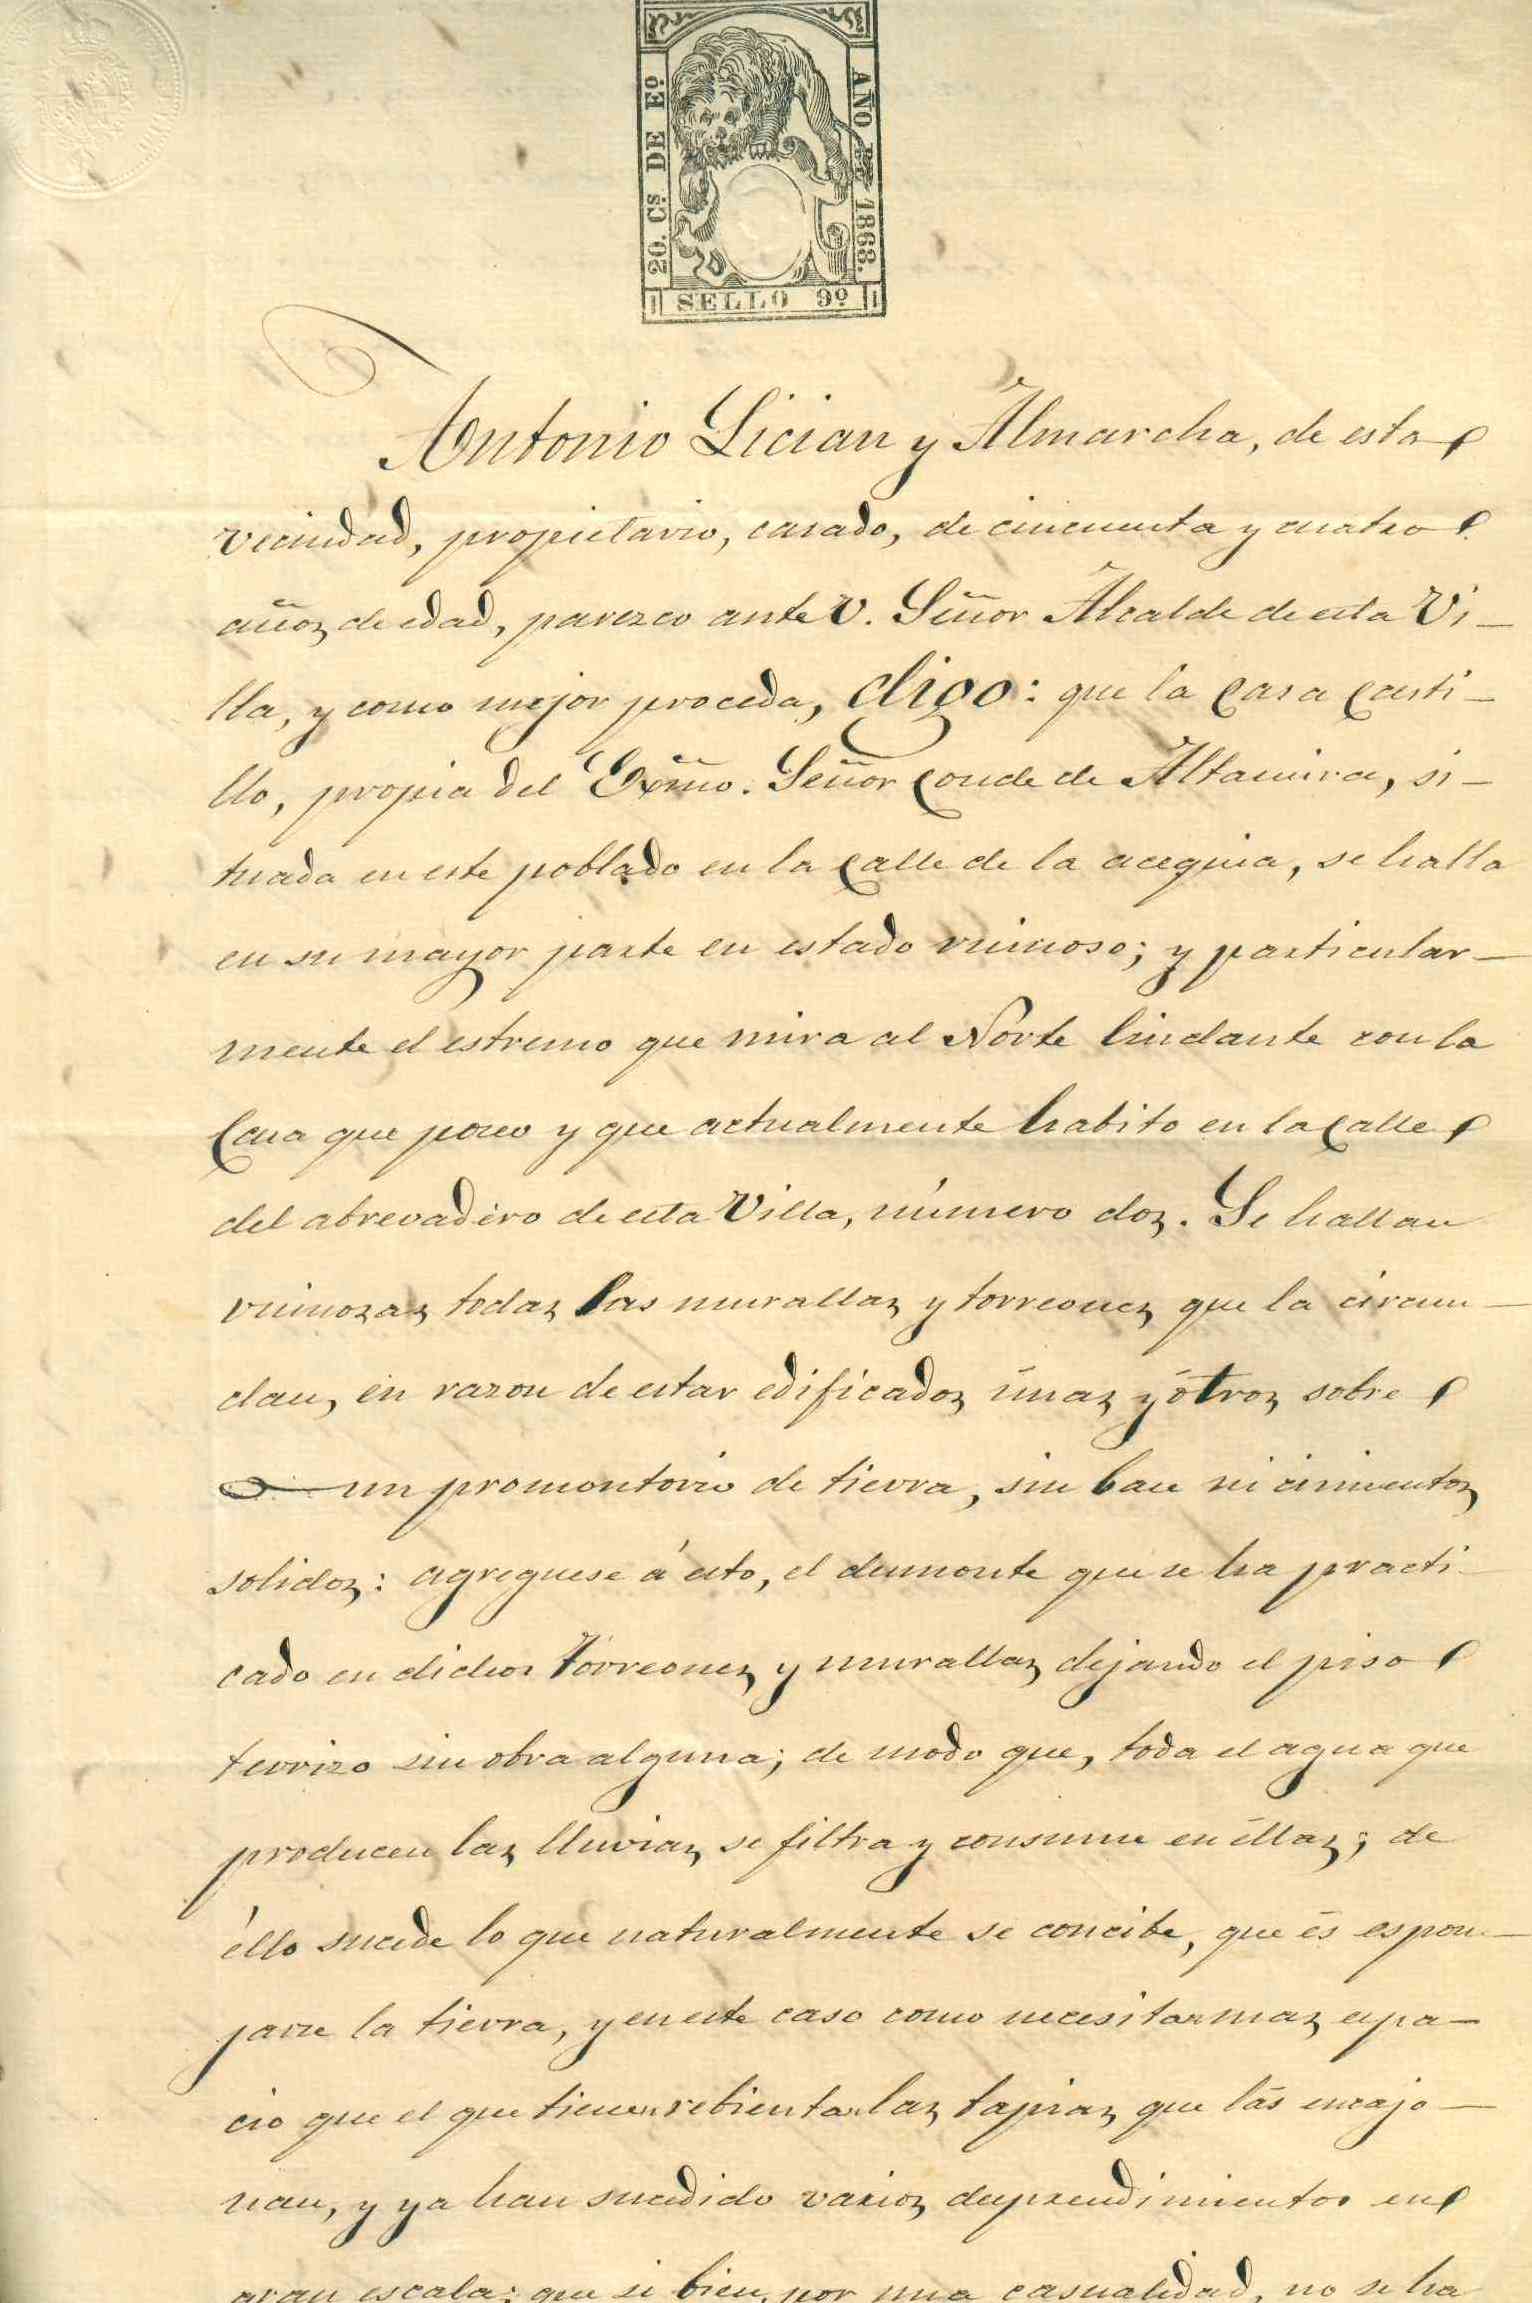 20. Cs DE Eo.
AÑO DE 1868.
SELLO 9º
Antonio Lician y Almarcha, de esta
vecindad, propietario, casado, de cincuenta y cuatro
años de edad, parezco ante V. Señor Alcalde de esta Vi-
lla, y como mejor proceda, digo: que la Casa Casti-
llo, propia del Exmo. Señor Conde de Altamira, si-
tuada en este poblado en la Calle de la acequia, se halla
en su mayor parte en estado ruinoso; y particular-
mente el estremo que mira al Norte lindante con la
Casa que poseo y que actualmente habito en la Calle
del abrevadero de esta Villa, número dos. Se hallan
ruinosas todas las murallas y torreones que la circun-
dan, en razon de estar edificados únas y ótros sobre
un promontorio de tierra, sin base ni cimientos
solidos: agreguese á esto, el desmonte que se ha practi-
cado en dichos torreones y murallas dejando el piso
terrizo sin obra alguna; de modo que, toda el agua que
producen las lluvias, se filtra y consume en éllas; de
éllo sucede lo que naturalmente se concibe, que és espon-
jarse la tierra, y en este caso como necesitan mas espa-
cio que el que tienen rebientan las tapias que lás encajo-
nan, y ya han sucedido varios desprendimientos en
gran escala; que si bien, por una casualidad, no se ha